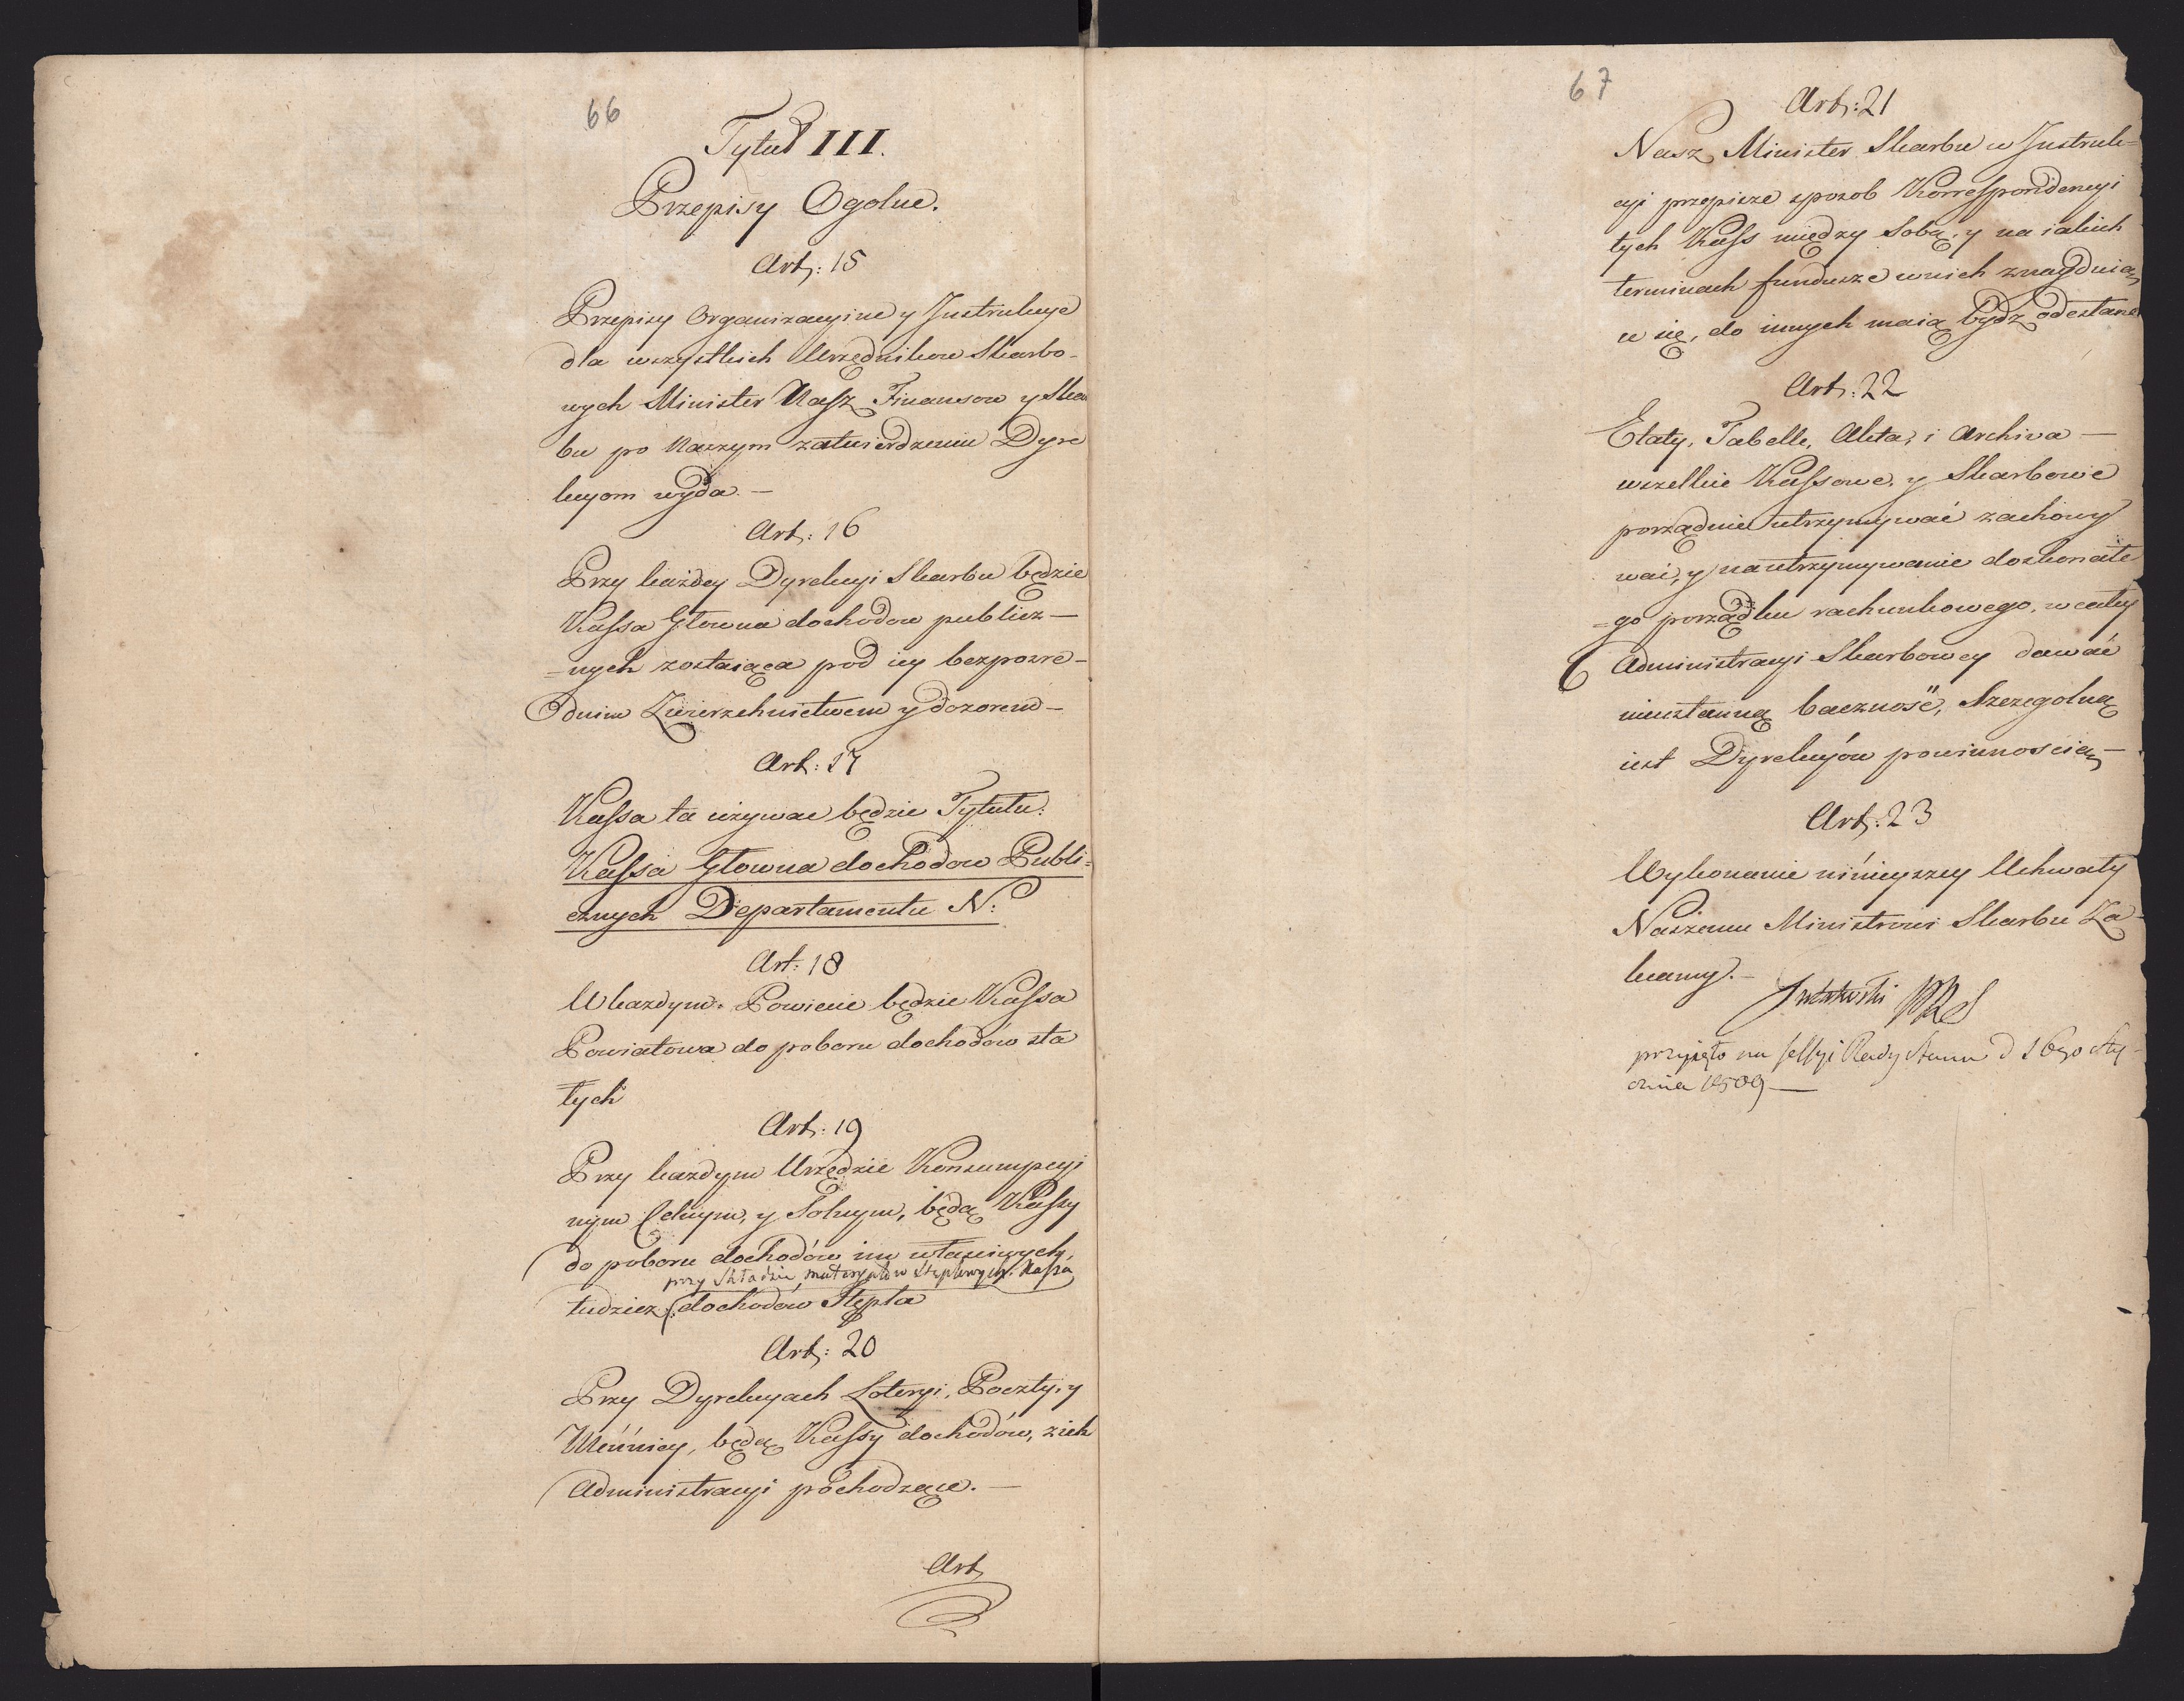 66
Tytuł III.
Przepisy Ogolne.
Art: 15
Przepisy Organizacyine y Instrukcye
dla wszystkich Urzędnikow Skarbo-
wych Minister Nasz Finansow y Skar
bu po Naszym zatwierdzeniu Dyre
kcyom wyda. —
Art: 16
Przy każdey Dyrekcyi Skarbu będzie
Kassa Głowna dochodow publicz —
=nych zostaiąca pod iey bezpozre-
dnim Zwierzchnictwem y dozorem —
Art: 17
Kassa ta używac będzie Tytułu:
Kassa Głowna dochodow Publi=
cznych Departamentu N:
Art: 18
W kazdym Powiecie będzie Kassa
Powiatowa do poboru dochodów sta
łych
Art: 19
Przy kazdym Urzędzie Konsumpcyi
nym Celnym, y Solnym, będą Kassy
do poboru dochodów im własciwych,
przy Składzie materyałow Stęplowych. Kassa
tudziez dochodow Stępla
Art: 20
Przy Dyrekcyach Loteryi, Poczty, y
Menńicy, będą Kassy dochodów, z ich
Administracyi pochodzące. —
Art
67
Art: 21
Nasz Minister Skarbu w Instruk=
cyi przepisze sposob Korrespondencyi
tych Kass między Sobą, y na iakich
terminach fundusze w nich znayduią
ce się, do innych maią bydz odesłane
Art: 22
Etaty, Tabelle, Akta, i Archiva —
wszelkie Kassowe, y Skarbowe
porządnie utrzymywać zachowy
wać, y na utrzymywanie doskonałe
=go porządku rachunkowego, w całey
Administracyi Skarbowey dawać
nieustanną baczność, Szczegolną
iest Dyrekcyów powinnoscią —
Art: 23
Wykonanie ninieyszey Uchwały
Naszemu Ministrowi Skarbu Za-
lecamy. —
przyięto na sessyi Rady Stanu d 16go Sty-
cznia 1809 —